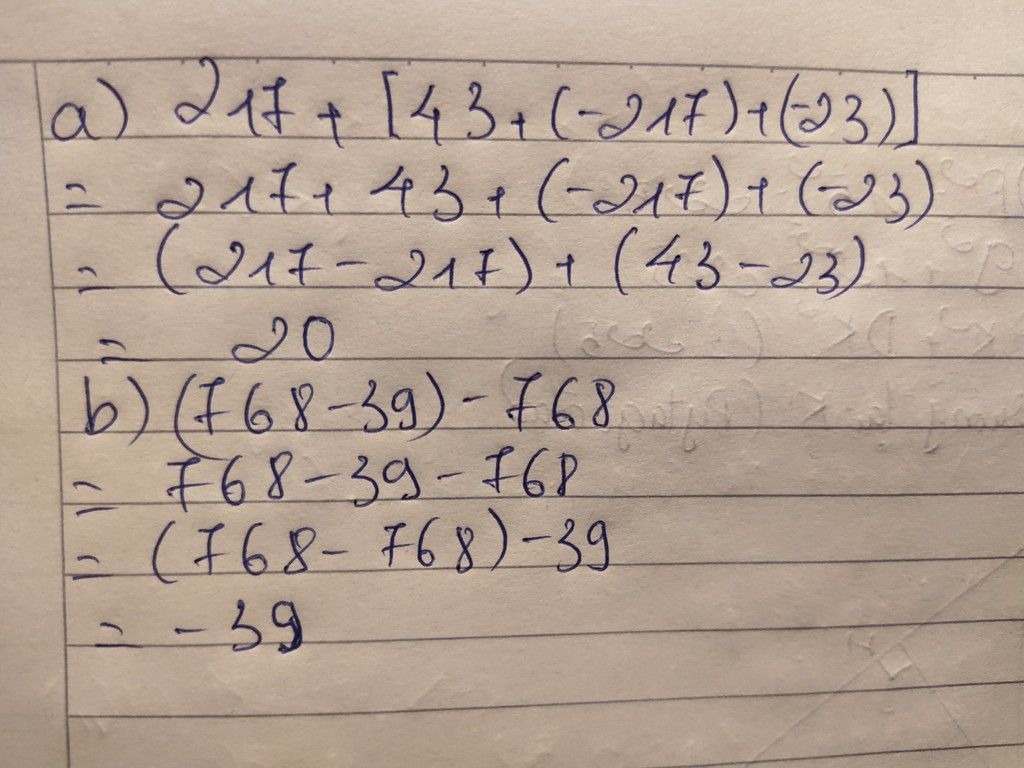 a) 217 + [43 + (-217) + (-23)]
= 217 + 43 + (-217) + (-23)
= (217 - 217) + (43 - 23)
= 20
b) (768 - 39) - 768
= 768 - 39 - 768
= (768 - 768) - 39
= - 39